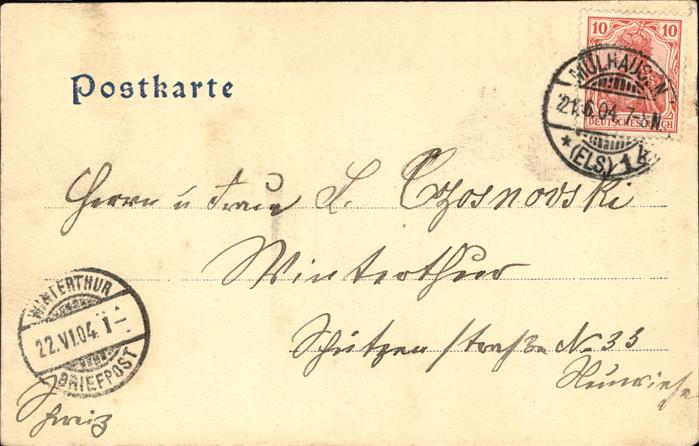 Postkarte
10 10
DEUTSCHES REICH
MÜLHAUSEN
21.6.04. 7-8N
* (ELS) 1
Herrn u Frau L. Czosnovski
Winterthur
Schützenstraße No 33
WINTERTHUR
22.VI.04.
BRIEFPOST
Schweiz